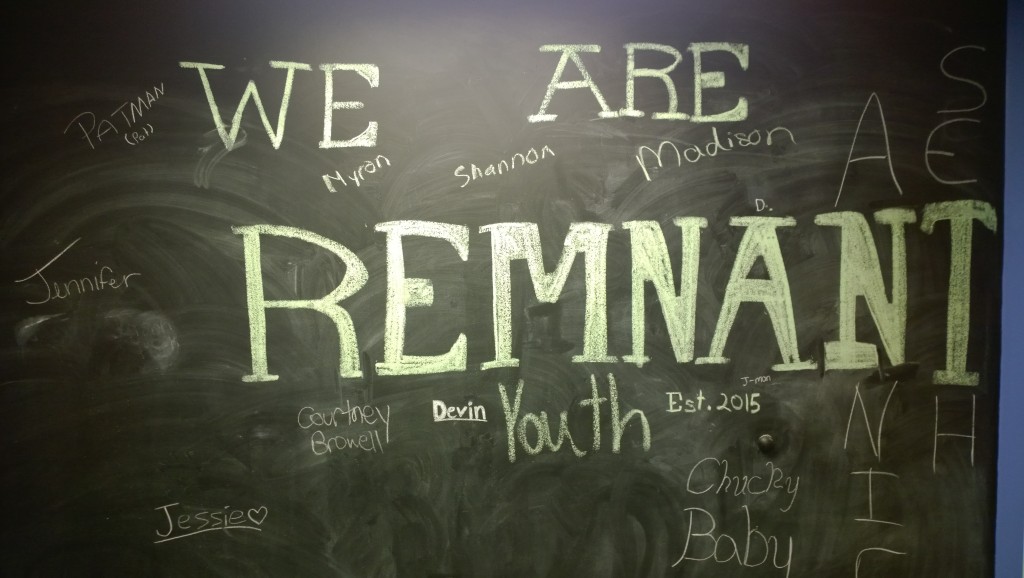 WE ARE
PATMAN
Myron
Shannon
Madison
D.
REMNANT
Jennifer
Youth
Est. 2015
J-man
Devin
Courtney
Browell
Chucky
Baby
Jessie♡
A
N
I
S
E
H